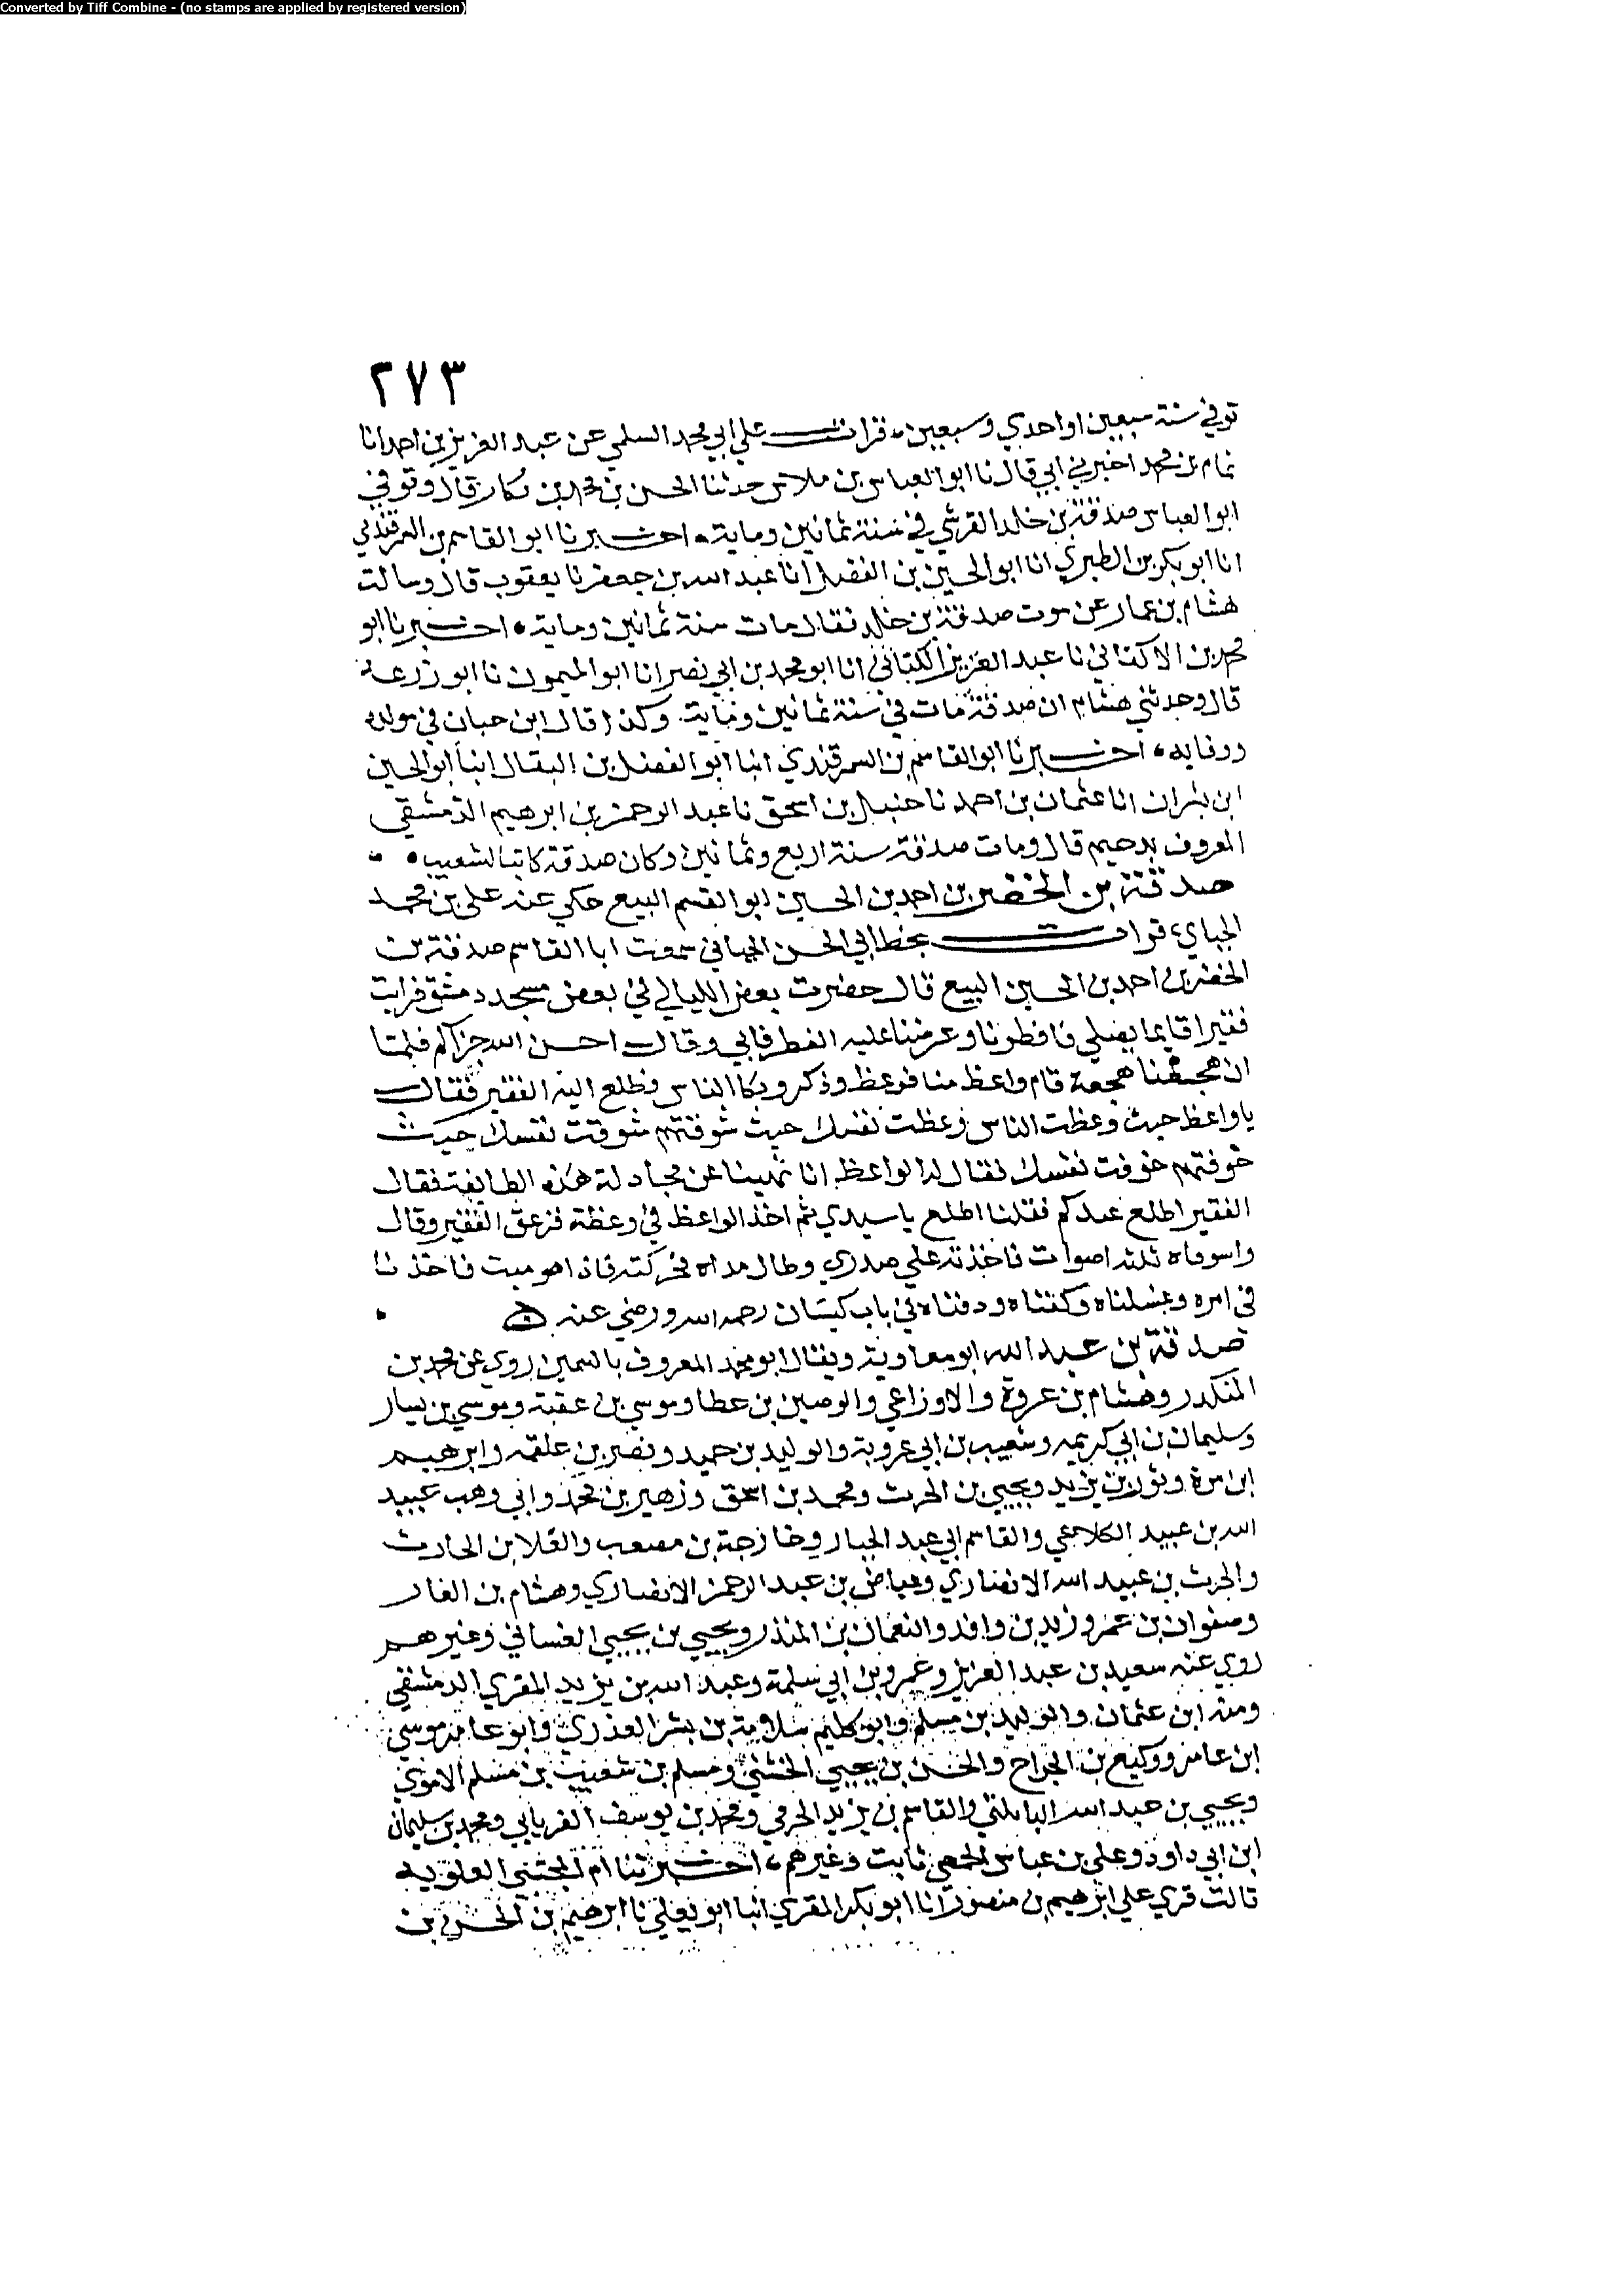 Converted by Tiff Combine - (no stamps are applied by registered version)
٢٧٣
توفي سنة سبعين او احدي وسبعين، قرات علي ابي محمد السلمي عن عبد العزيز بن احمد انا
تمام بن محمد اخبرني ابي قال نا ابو العباس بن ملاس حدثنا الحسن بن محمد بن بكار قال وتوفي
ابو العباس صدقة بن خالد القرشي في سنة ثمانين وماية، اخبرنا ابو القاسم بن السمرقندي
انا ابو بكر بن الطبري انا ابو الحسين بن الفضل انا عبد الله بن جعفر نا يعقوب قال وسالت
هشام بن عمار عن موت صدقة بن خالد فقال مات سنة ثمانين وماية، اخبرنا ابو
محمد بن الاكفاني نا عبد العزيز الكتاني انا ابو محمد بن ابي نصر انا ابو الميمون نا ابو زرعة
قال وحدثني هشام ان صدقة مات في سنة ثمانين وماية. وكذا قال ابن حبان في مولده
ووفاته، اخبرنا ابو القاسم بن السمرقندي انبا ابو الفضل بن البقال انبا ابو الحسين
ابن بشران انا عثمان بن احمد نا حنبل بن اسحق نا عبد الرحمن بن ابرهيم الدمشقي
المعروف بدحيم قال ومات صدقة سنة اربع وثمانين وكان صدقة كاتبا لشعيب
صدقة بن الخضر بن احمد بن الحسين ابو القسم البيع حكي عنه علي بن محمد
قرات بخط ابي الحسن سمعت ابا القاسم صدقة بن
الخضر بن احمد بن الحسين البيع قال حضرت بعض الليالي في بعض مسجد دمشق فرايت
فقيرا قايما يصلي فافطرنا وعرضنا عليه الفطر فابي وقال احسن الله جزاكم فلما
ان هجعنا هجعة قام واعظ منا فوعظ وذكر وبكا الناس فطلع اليه الفقير فقال
يا واعظ حيث وعظت الناس وعظت نفسك حيث شوقتهم شوقت نفسك حيث
خوفتهم خوفت نفسك فقال له الواعظ انا نهينا عن مجادلة هذه الطايفة فقال
الفقير اطلع عندكم فقلنا اطلع يا سيدي ثم اخذ الواعظ في وعظه فزعق الفقير وقال
ثلثه اصوات فاخذته علي صدري وطال مداه فحركته فاذا هو ميت فاخذنا
في امره وغسلناه وكفناه ودفناه في باب كيسان رحمه الله ورضي عنه
صدقة بن عبد الله ابو معاوية ويقال ابو محمد المعروف بالسمين روي عن محمد بن
المنكدر وهشام بن عروة والاوزاعي والوضين بن عطا وموسي بن عقبة وموسي بن يسار
وسليمان بن ابي كريمه وشعيب بن ابي عروبة والوليد بن حميد ونصر بن علقمه وابرهيم
ابن مرة وثور بن يزيد ويحيي بن الحرث ومحمد بن اسحق وزهير بن محمد وابي وهب عبيد
الله بن عبيد الكلاعي والقاسم ابي عبد الجبار وخارجة بن مصعب والعلا بن الحارث
والحرث بن عبيد الله الانصاري وعياض بن عبد الرحمن الانصاري وهشام بن الغاز
وصفوان بن عمرو وزيد بن واقد والنعمان بن المنذر ويحيي بن يحيي الغساني وغيرهم
روي عنه سعيد بن عبد العزيز وعمرو بن ابي سلمة وعبد الله بن يزيد المقري الدمشقي
ومنبه ابن عثمان والوليد بن مسلم وابو كليم سلامة بن بشر العذري وابو عامر موسي
ابن عامر ووكيع بن الجراح والحسن بن يحيي الخشني ومسلم بن شعيب بن مسلم الاموي
ويحيي بن عبد الله البابلتي والقاسم بن يزيد الجرمي ومحمد بن يوسف الفريابي ومحمد بن سليمان
ابن ابي داود وعلي بن عياش الحمصي ثابت وغيرهم، اخبرتنا ام المجتبي العلوية
قالت قري علي ابرهيم بن منصور انا ابو بكر المقري انبا ابو يعلي نا ابرهيم بن الحسن بن